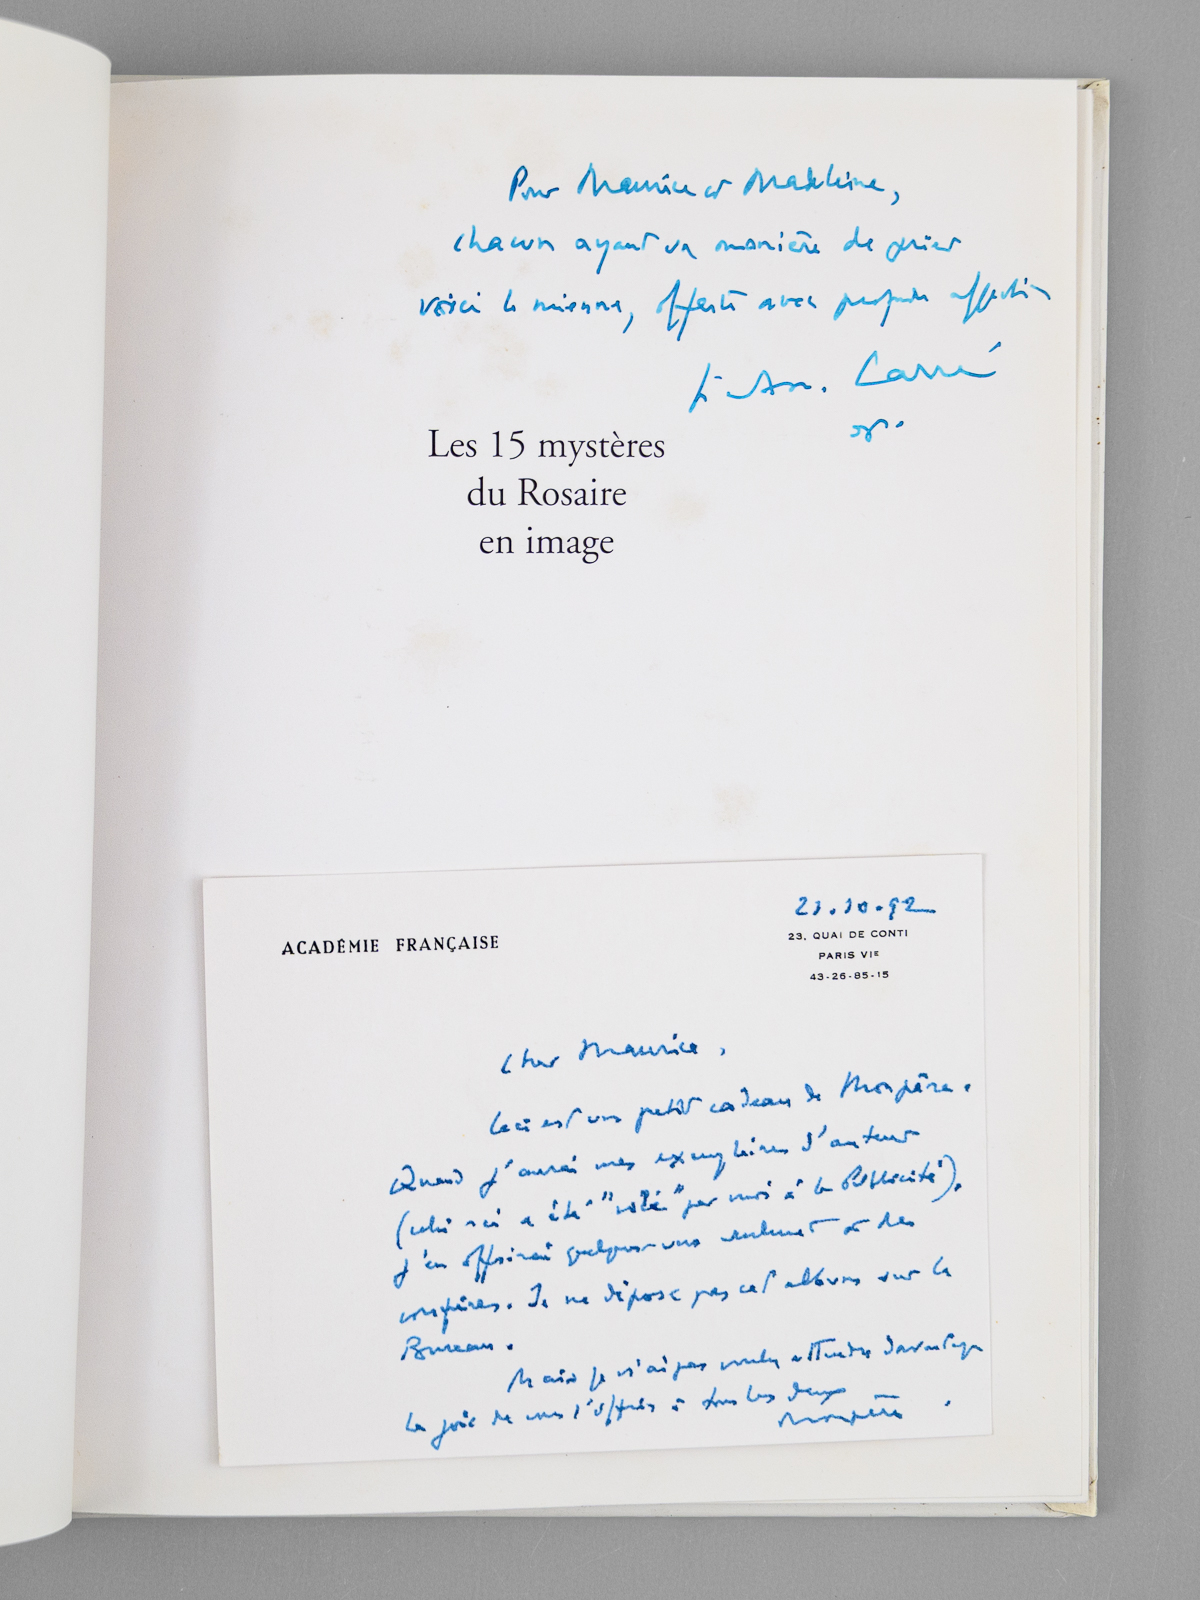 Pour Maurice et Madeleine,
chacun ayant sa manière de prier
voici la mienne, offerte avec profonde affection
f. A.m. Carré
o.p.
Les 15 mystères
du Rosaire
en image
ACADÉMIE FRANÇAISE
23, QUAI DE CONTI
PARIS VIE
43-26-85-15
Cher Maurice,
Ceci est un petit cadeau de Monpère.
Quand j'aurai mes exemplaires d'auteur
(celui-ci a été "volé" par moi à la Publicité),
j'en offrirai quelques-uns seulement et des
confrères. Je ne dépose pas cet album sur le
Bureau.
Mais je n'ai pas voulu attendre davantage
la joie de vous l'offrir à tous les deux
Monpère.